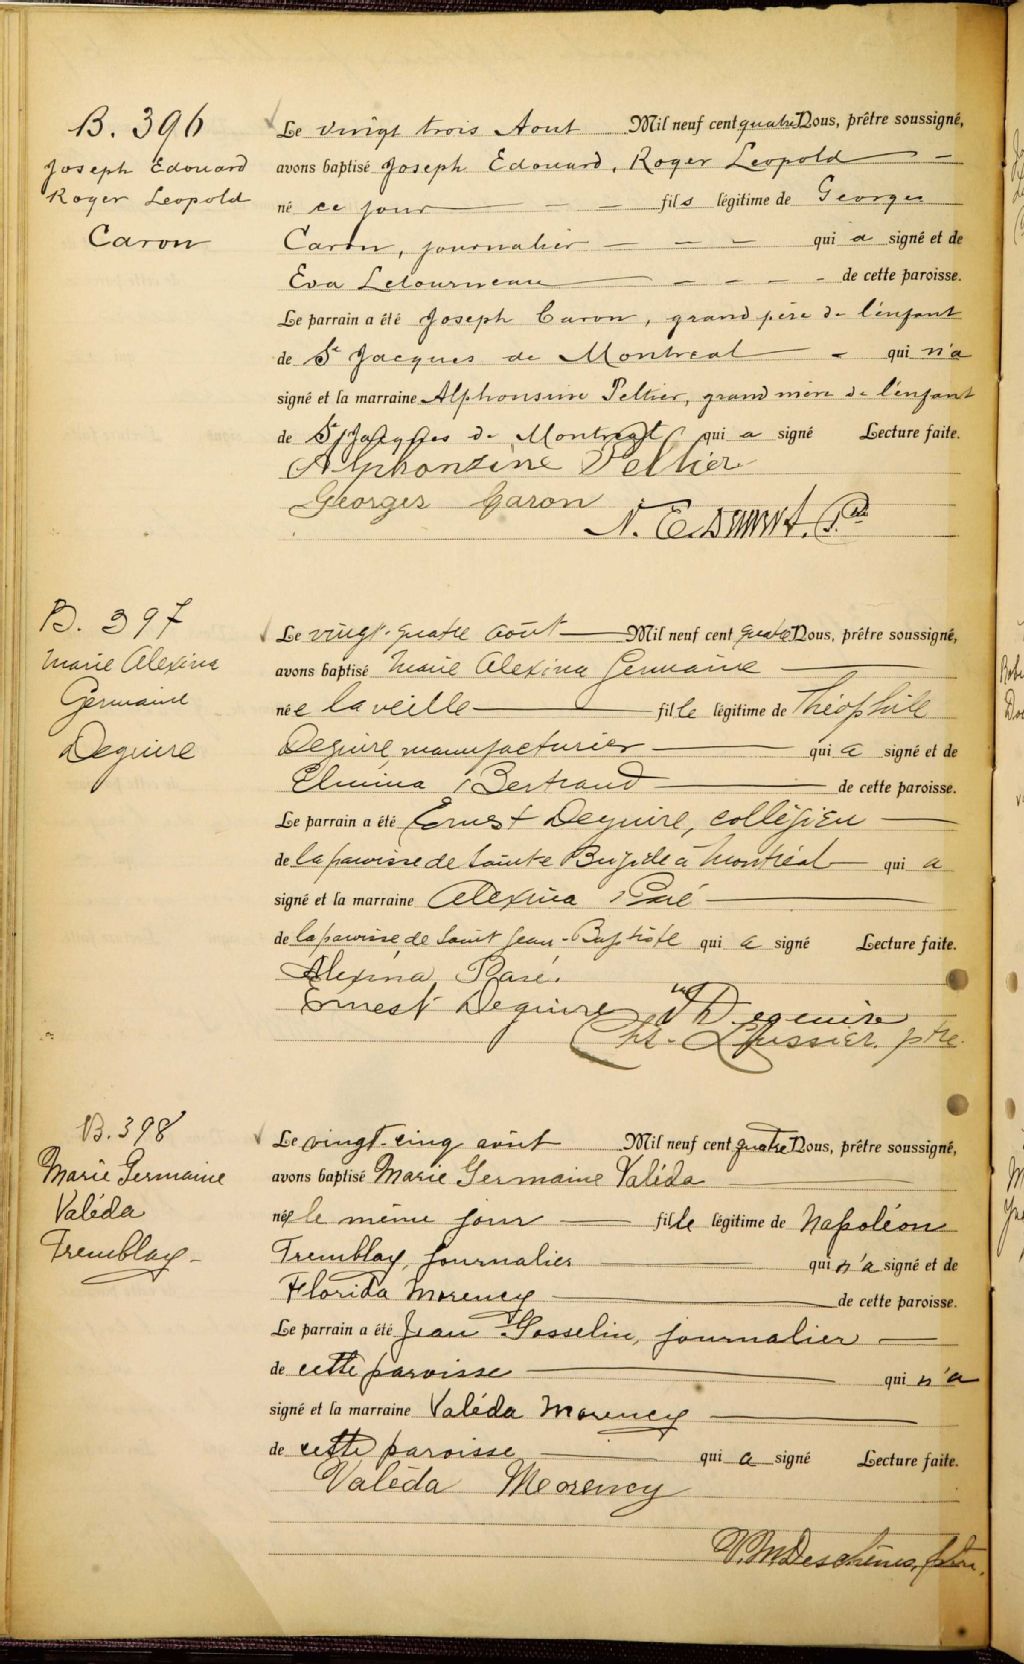 B. 396
Joseph Edouard
Roger Leopold
Caron
Le vingt trois Aout Mil neuf cent quatre Nous, prêtre soussigné,
avons baptisé Joseph Edouard, Roger Leopold
né ce jour fils légitime de Georges
Caron, journalier qui a signé et de
Eva Letourneau de cette paroisse.
Le parrain a été Joseph Caron, grand père de l'enfant
de St Jacques de Montreal qui n'a
signé et la marraine Alphonsine Peltier, grand mère de l'enfant
de St Jacques de Montreal qui a signé Lecture faite.
Alphonzine Peltier
Georges Caron
N. E.
B. 397
Marie Alexina
Germaine
Deguire
Le vingt-quatre août Mil neuf cent quatre Nous, prêtre soussigné,
avons baptisé Marie Alexina Germaine
née la veille fille légitime de Théophile
Deguire, manufacturier qui a signé et de
Elmina Bertrand de cette paroisse.
Le parrain a été Ernest Deguire, collégien
de la paroisse de Sainte Brigide à Montréal qui a
signé et la marraine Alexina Paré
de la paroisse de Saint Jean-Baptiste qui a signé Lecture faite.
Alexina Paré.
Ernest Deguire T Deguire
Chs. Lussier. ptre.
B. 398
Marie Germaine
Valéda
Tremblay
Le vingt-cinq août Mil neuf cent quatre Nous, prêtre soussigné,
avons baptisé Marie Germaine Valéda
née le même jour fille légitime de Napoléon
Tremblay, journalier qui n'a signé et de
Florida Morency de cette paroisse.
Le parrain a été Jean Gosselin, journalier
de cette paroisse qui n'a
signé et la marraine Valéda Morency
de cette paroisse qui a signé Lecture faite.
Valéda Morency
V. M. Deschênes, ptre.